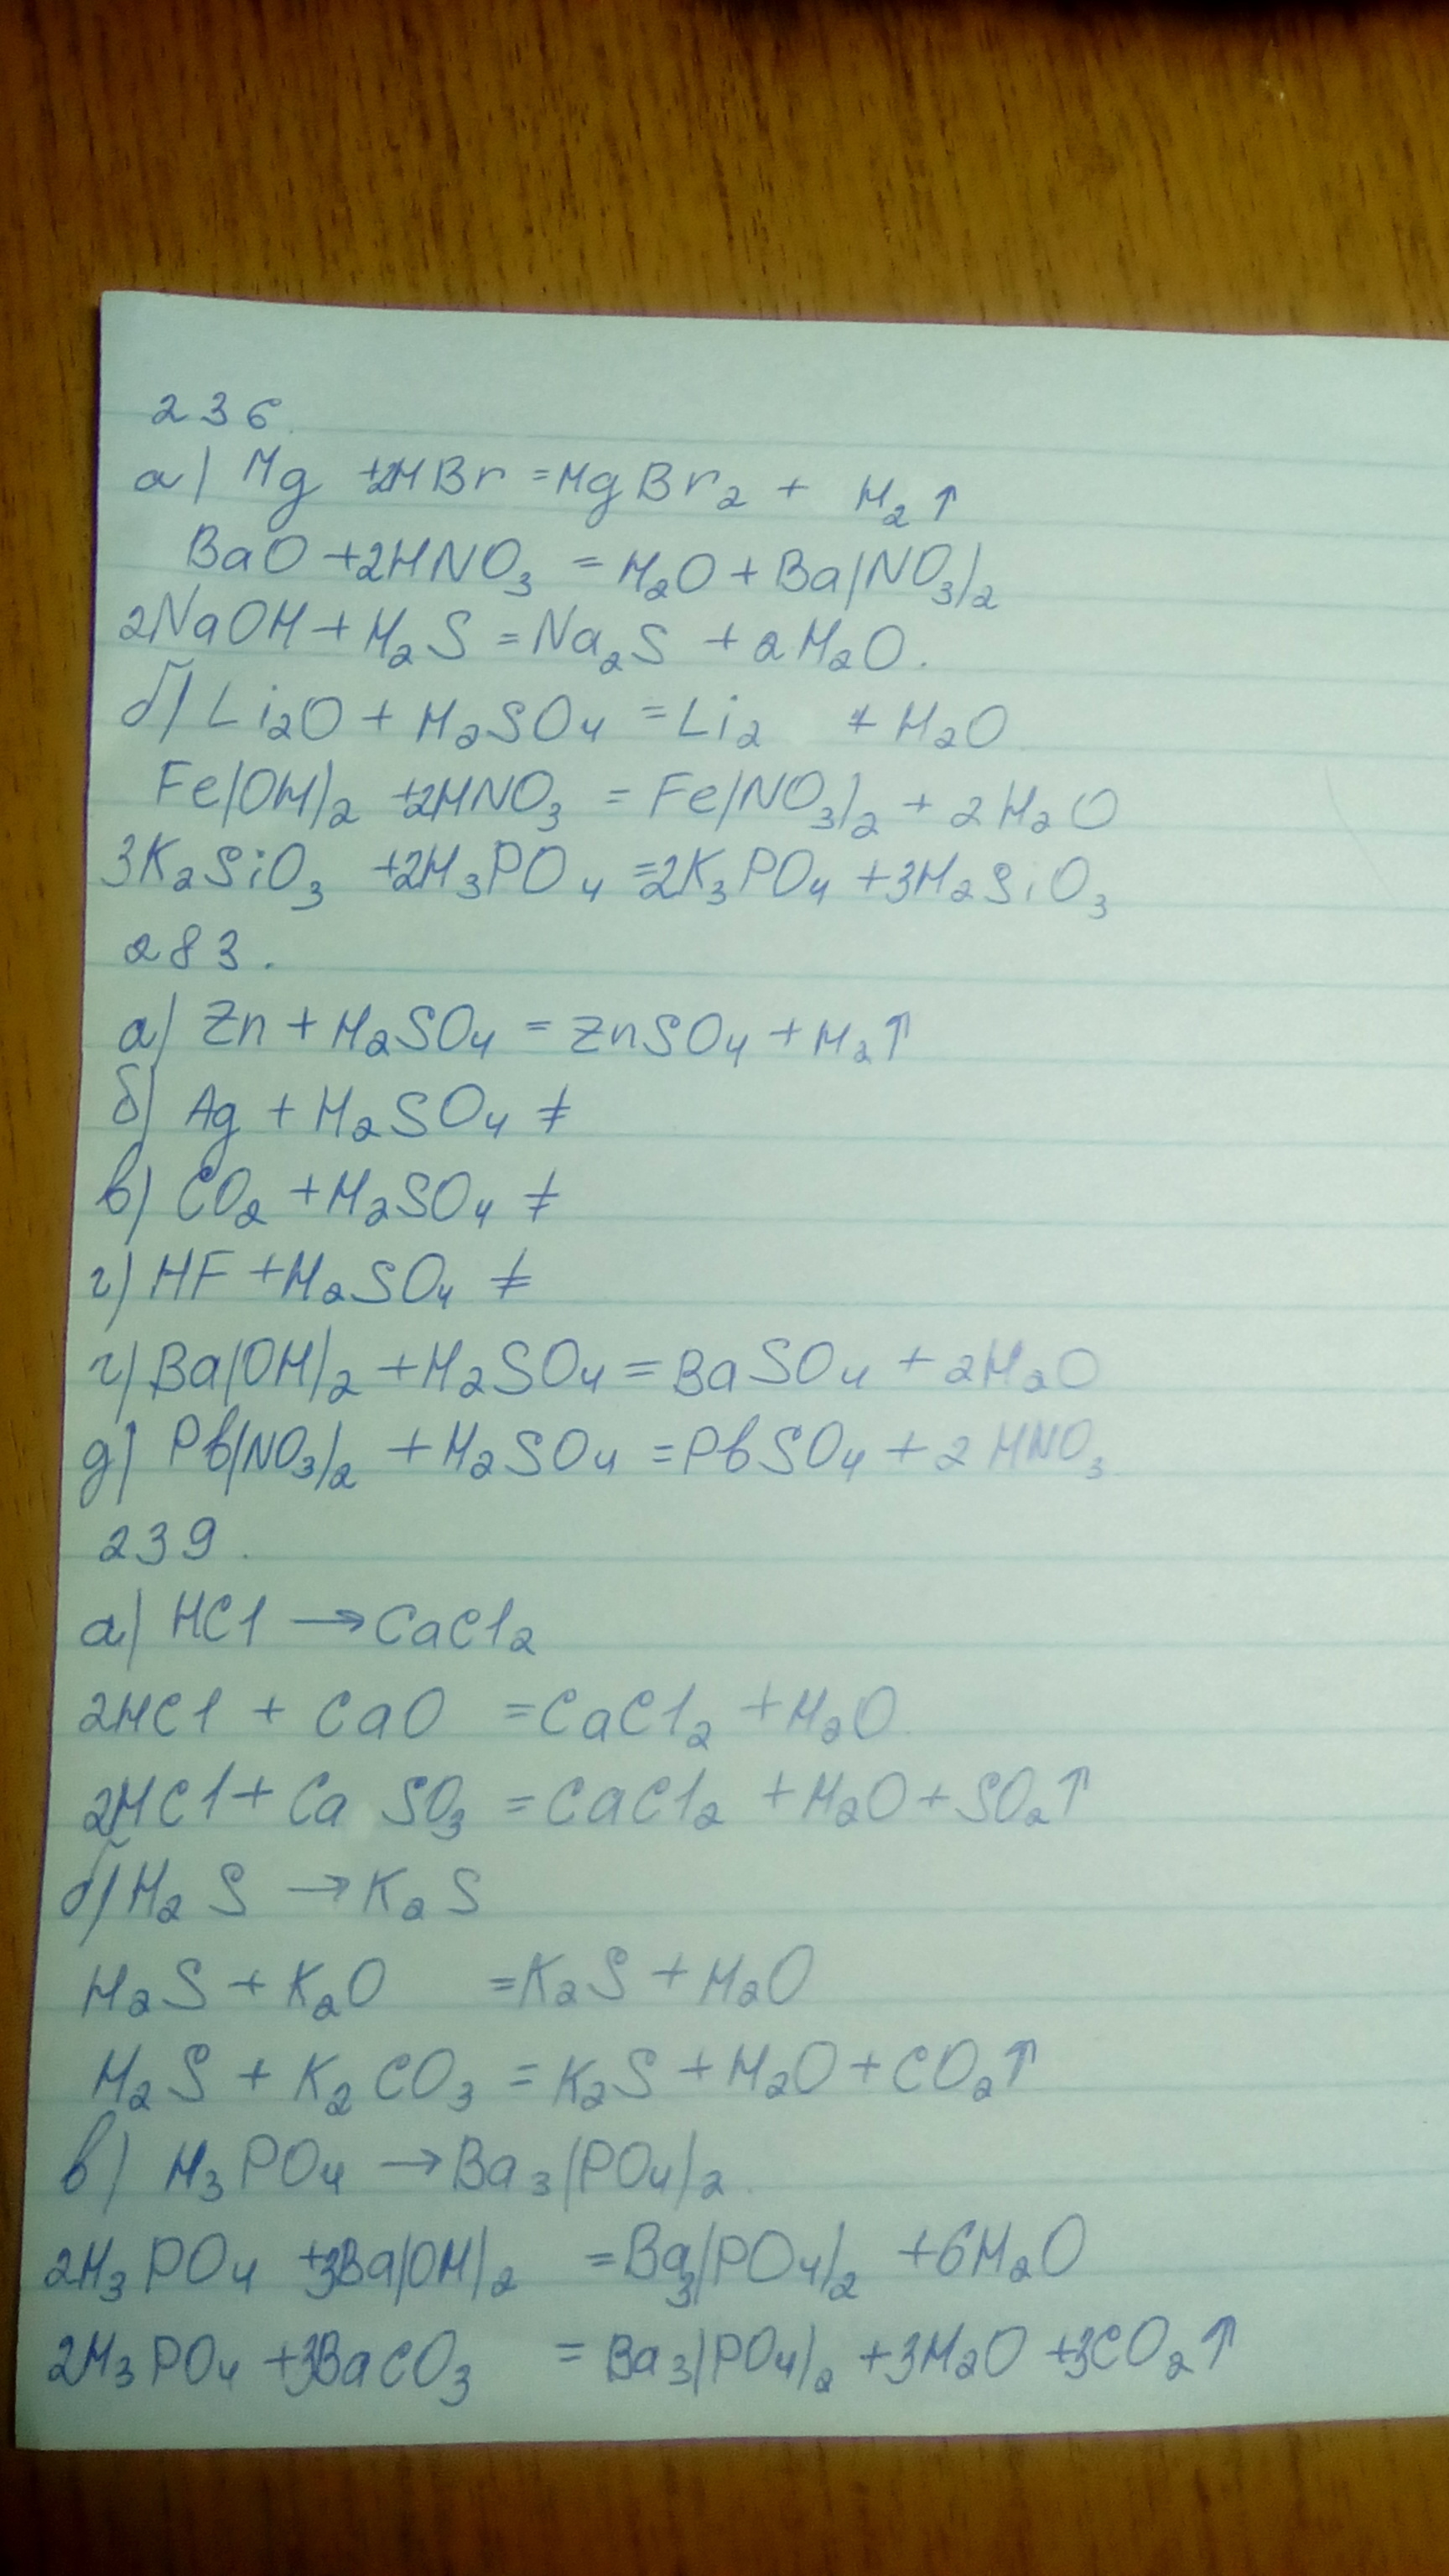 236.
а) Mg +2HBr = MgBr₂ + H₂↑
BaO +2HNO₃ = H₂O + Ba(NO₃)₂
2NaOH + H₂S = Na₂S + 2H₂O.
б) Li₂O + H₂SO₄ = Li₂ + H₂O
Fe(OH)₂ +2HNO₃ = Fe(NO₃)₂ + 2H₂O
3K₂SiO₃ +2H₃PO₄ =2K₃PO₄ +3H₂SiO₃
283.
а) Zn + H₂SO₄ = ZnSO₄ + H₂↑
б) Ag + H₂SO₄ ≠
в) CO₂ + H₂SO₄ ≠
г) HF + H₂SO₄ ≠
г) Ba(OH)₂ + H₂SO₄ = BaSO₄ + 2H₂O
д) Pb(NO₃)₂ + H₂SO₄ = PbSO₄ + 2HNO₃
239.
а) HCl → CaCl₂
2HCl + CaO = CaCl₂ + H₂O
2HCl + Ca SO₃ = CaCl₂ + H₂O + SO₂↑
б) H₂S → K₂S
H₂S + K₂O = K₂S + H₂O
H₂S + K₂CO₃ = K₂S + H₂O + CO₂↑
в) H₃PO₄ → Ba₃(PO₄)₂
2H₃PO₄ +3Ba(OH)₂ = Ba₃(PO₄)₂ +6H₂O
2H₃PO₄ +3BaCO₃ = Ba₃(PO₄)₂ +3H₂O +3CO₂↑